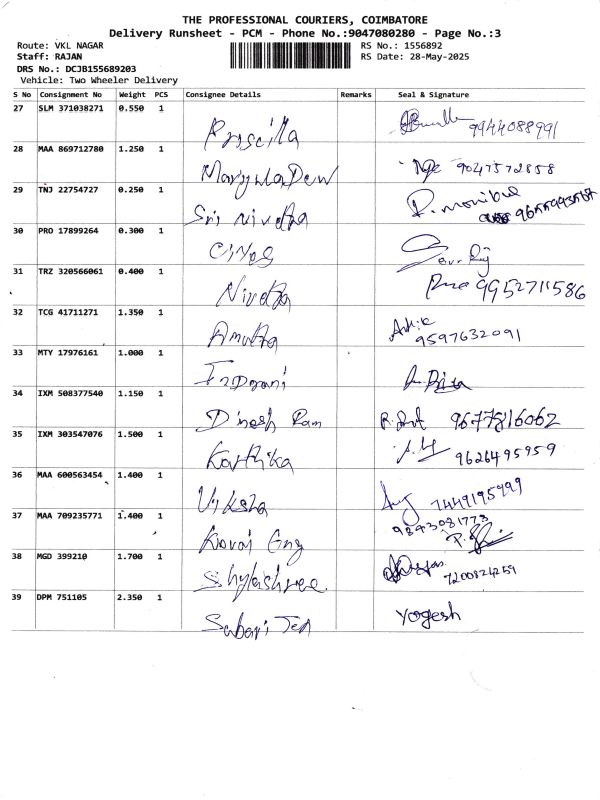 THE PROFESSIONAL COURIERS, COIMBATORE
Delivery Runsheet - PCM - Phone No.:9047080280 - Page No.:3
Route: VKL NAGAR RS No.: 1556892
Staff: RAJAN RS Date: 28-May-2025
DRS No.: DCJB155689203
Vehicle: Two Wheeler Delivery
S No Consignment No Weight PCS Consignee Details Remarks Seal & Signature
27 SLM 371038271 0.550 1
Priscilla 9944088991
28 MAA 869712780 1.250 1
9047572858
29 TNJ 22754727 0.250 1
Sri Nivetha
30 PRO 17899264 0.300 1
31 TRZ 320566061 0.400 1
Nivetha 9952711586
32 TCG 41711271 1.350 1
Amutha 9597632091
33 MTY 17976161 1.000 1
34 IXM 508377540 1.150 1
Dinesh Ram 9677816062
35 IXM 303547076 1.500 1
Karthika 9626495959
36 MAA 600563454 1.400 1
7449195999
37 MAA 709235771 1.400 1
9843081773
38 MGD 399210 1.700 1
Shylashree 7200824259
39 DPM 751105 2.350 1
Sabari Yogesh